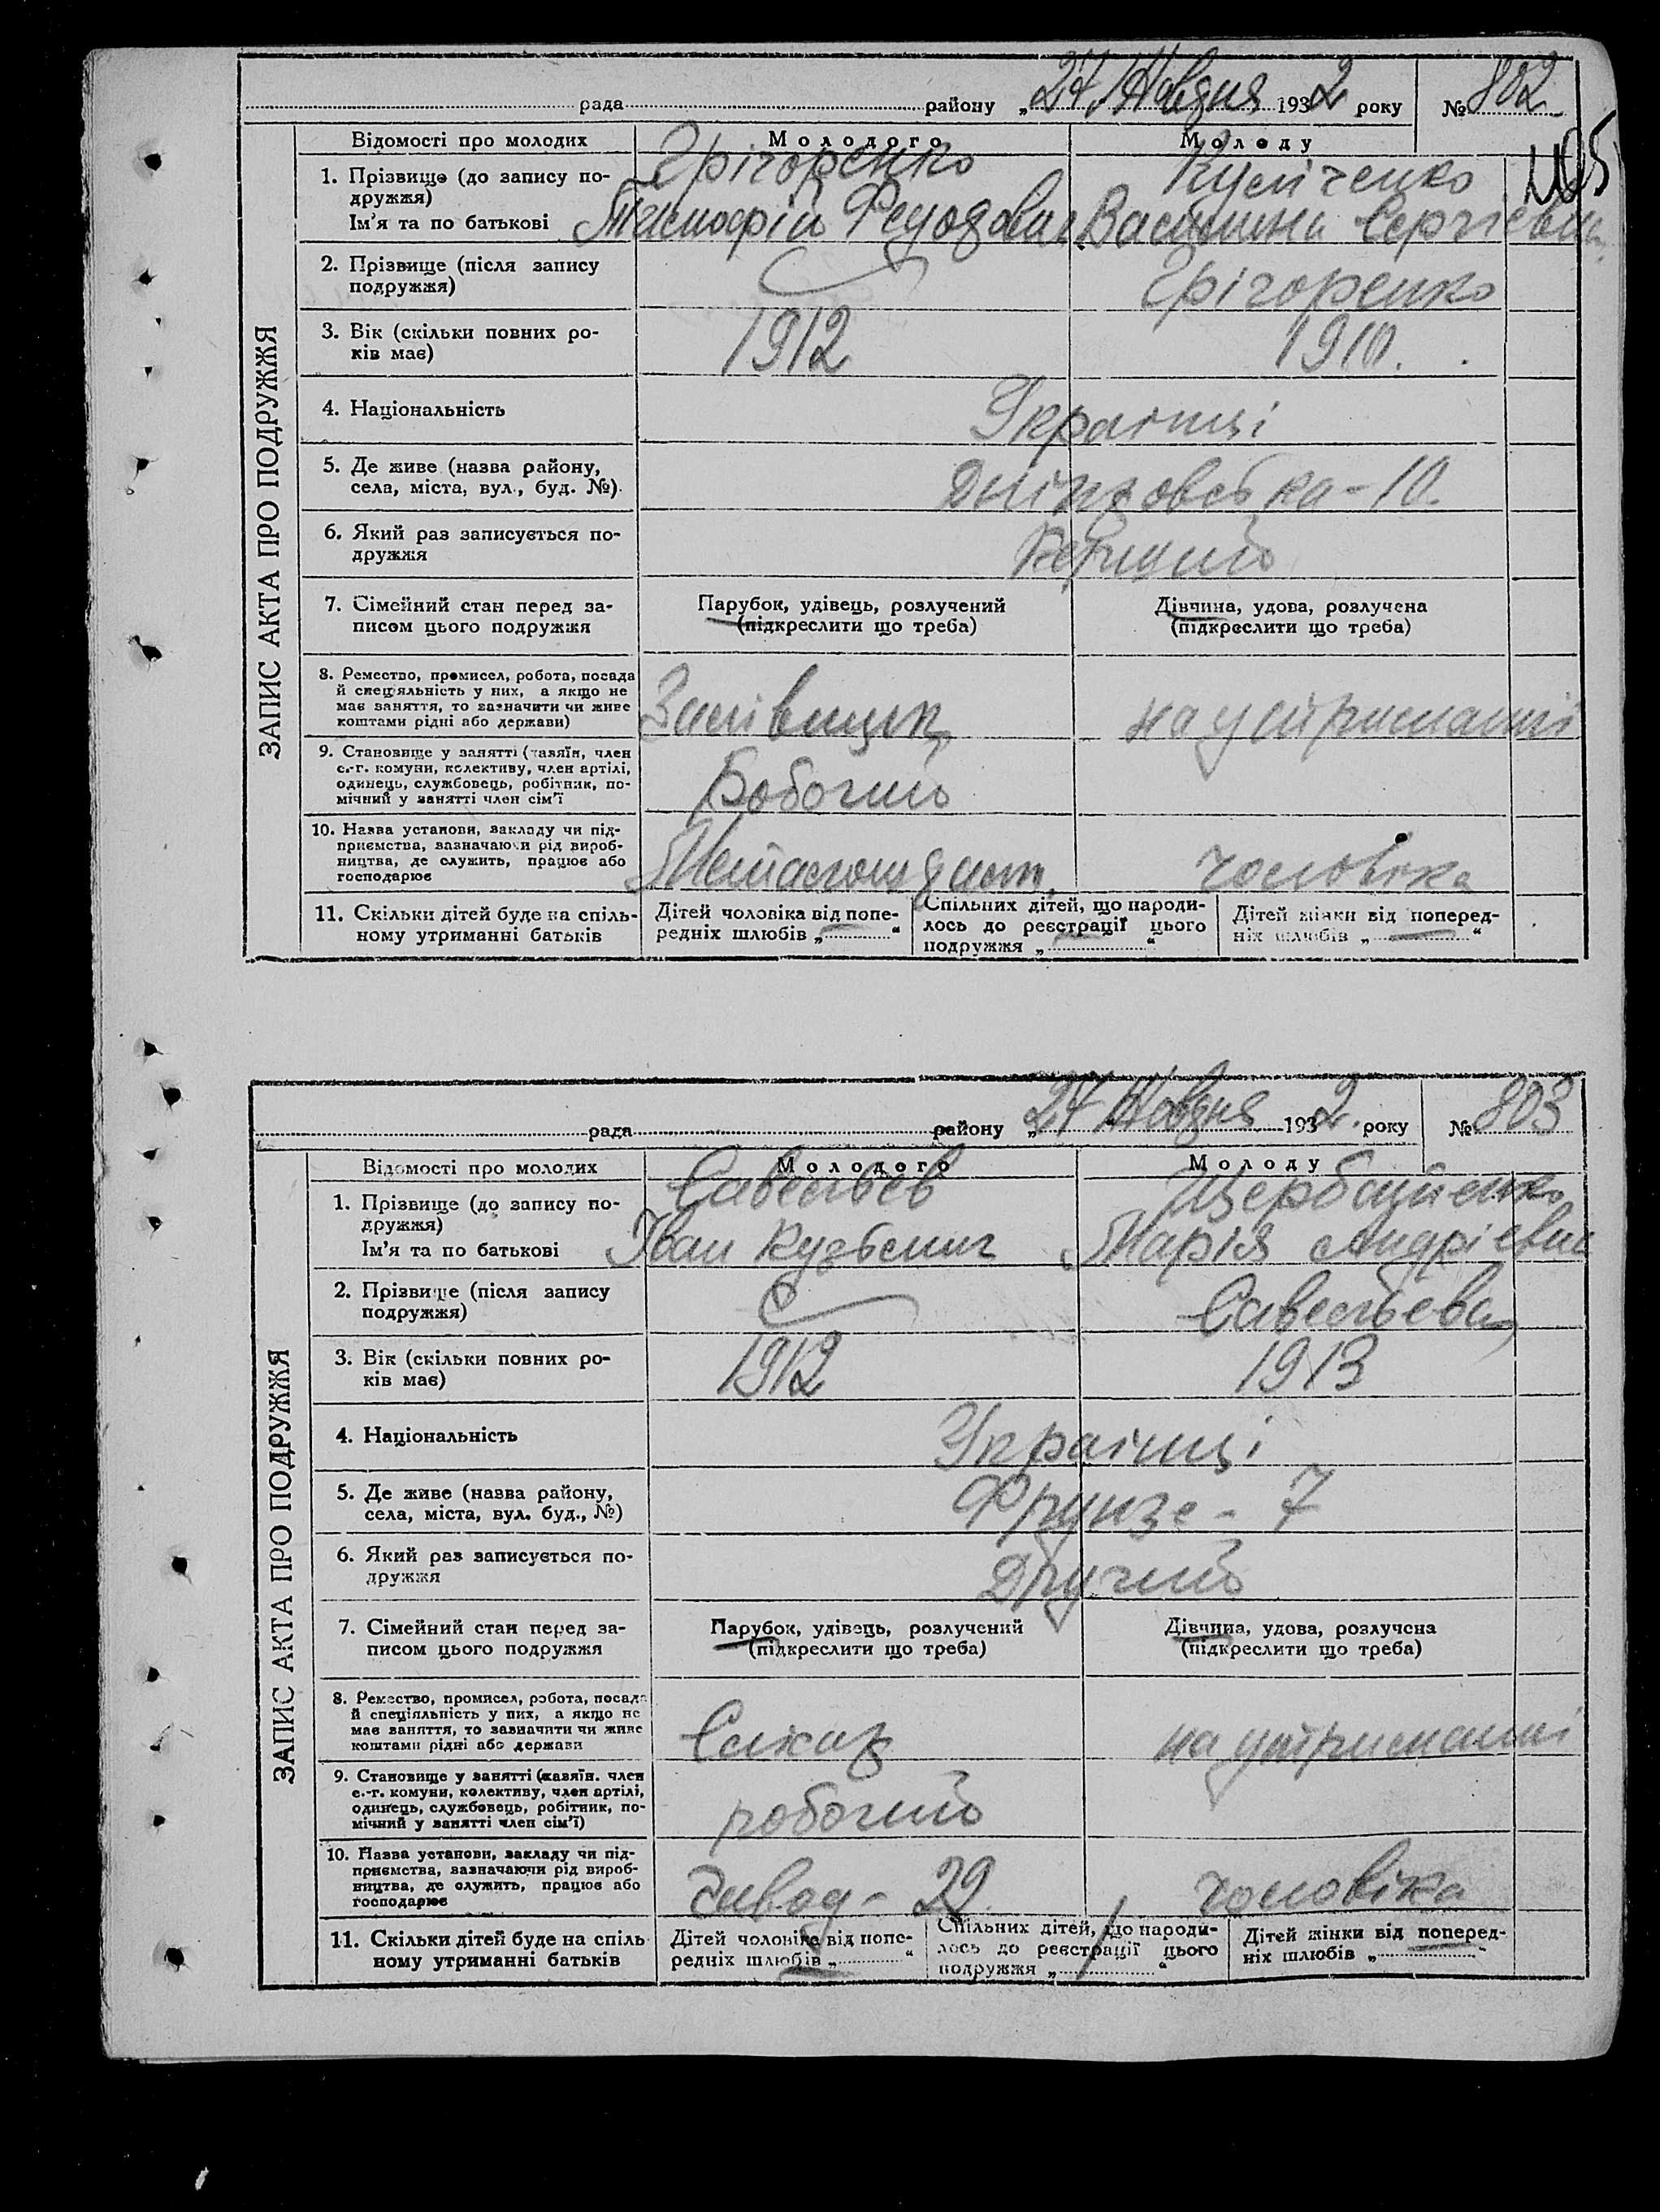 рада района „24 Жовдня 1932 року № 802
ЗАПИС АКТА ПРО ПОДРУЖЖЯ
Відомості про молодих Молодого Молоду
1. Прізвище (до запису подружжя) Грігоренко
Ім'я та по батькові Сергіевна
2. Прізвище (після запису
подружжя) Грігоренко
3. Вік (скільки повних ро-
ків має) 1912 1910.
4. Національність Українці
5. Де живе (назва району,
села, міста, вул., буд. №) -10.
6. Який раз записується по-
дружжя Первий
7. Сімейний стан перед за-
писом цього подружжя
Парубок, удівець, розлучений
(підкреслити що треба)
Дівчина, удова, розлучена
(підкреслити що треба)
8. Ремество, промисел, робота, посада
й спеціяльність у них, а якщо не
має заняття, то зазначити чи живе
коштами рідні або держави) на утриманні
9. Становище у занятті (хазяїн, член
с.-г. комуни, колективу, член артілі,
одинець, службовець, робітник, по-
мічний у занятті член сім'ї Робочий
10. Назва установи, закладу чи під-
приємства, зазначаючи рід вироб-
ництва, де служить, працює або
господарює чоловіка
11. Скільки дітей буде на спіль-
ному утриманні батьків
Дітей чоловіка від попе-
редніх шлюбів „ “
Спільних дітей, що народи-
лось до реєстрації цього
подружжя „ “
Дітей жінки від поперед-
ніх шлюбів „ “
рада району „24 Жовдня 1932. року № 803
ЗАПИС АКТА ПРО ПОДРУЖЖЯ
Відомості про молодих Молодого Молоду
1. Прізвище (до запису по-
дружжя) Савельев
Ім'я та по батькові Іван Кузьмич Марія Андріевна
2. Прізвище (після запису
подружжя) Савельева
3. Вік (скільки повних ро-
ків має) 1912 1913
4. Національність Українці
5. Де живе (назва району,
села, міста, вул. буд., №) Фрунзе - 7
6. Який раз записується по-
дружжя Другий
7. Сімейний стан перед за-
писом цього подружжя
Парубок, удівець, розлучений
(підкреслити що треба)
Дівчина, удова, розлучена
(підкреслити що треба)
8. Ремество, промисел, робота, посада
й спеціяльність у них, а якщо не
має заняття, то зазначити чи живе
коштами рідні або держави на утриманні
9. Становище у занятті (хазяїн. член
с.-г. комуни, колективу, член артілі,
одинець, службовець, робітник, по-
мічний у занятті член сім'ї) робочий
10. Назва установи, закладу чи під-
приємства, зазначаючи рід вироб-
ництва, де служить, працює або
господарює Завод - 29. чоловіка
11. Скільки дітей буде на спіль-
ному утриманні батьків
Дітей чоловіка від попе-
редніх шлюбів „ “
Спільних дітей, що народи-
лось до реєстрації цього
подружжя „ “
Дітей жінки від поперед-
ніх шлюбів „ “